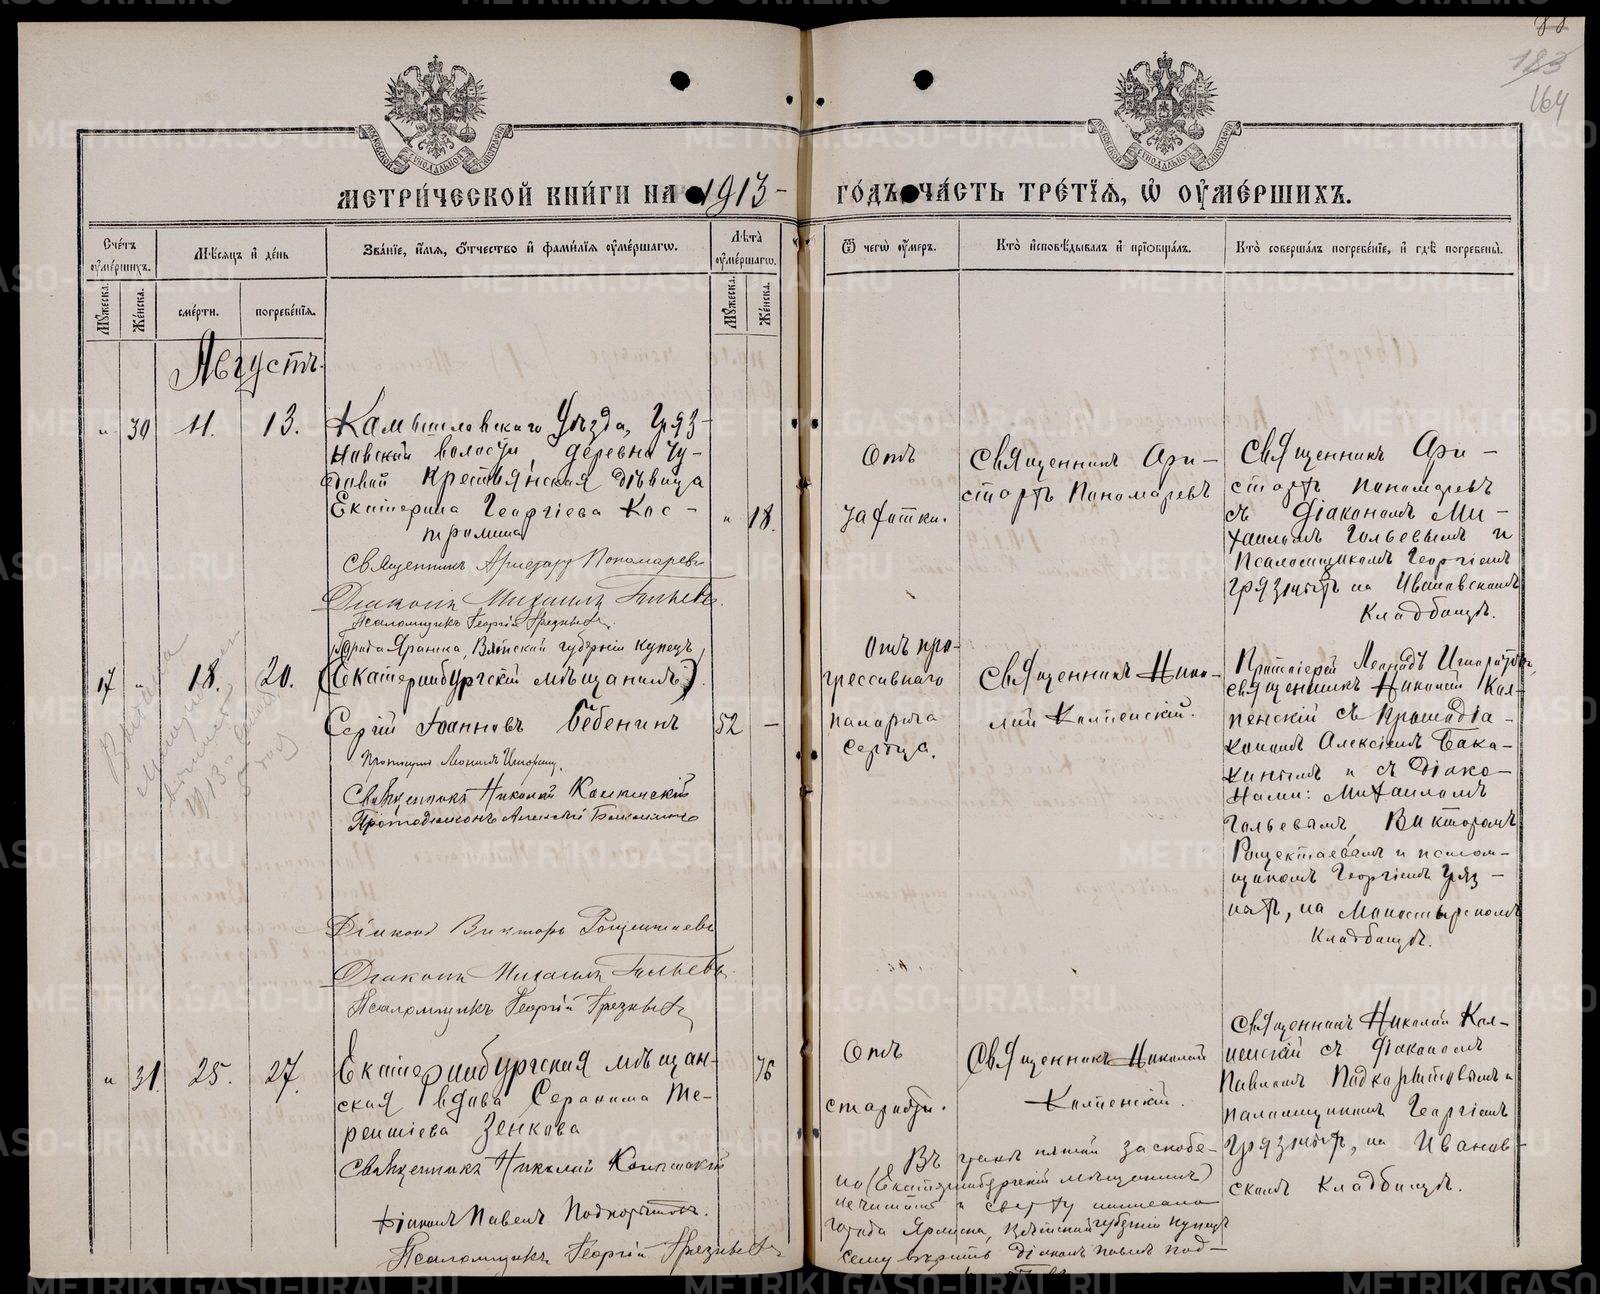 164
МЕТРИ́ЧЕСКОЙ КНИ́ГИ НА 1913
ГО́ДЪ ЧА́СТЬ ТРЕ́ТЇЯ, Ѡ ОУМЕ́РШИХЪ.
Сче́тъ оуме́ршихъ.
Мѣ́сяцъ и де́нь
Зва́нїе, и́мя, о́тчество и фами́лїя оуме́ршагѡ.
Лѣ́та оуме́ршагѡ.
Ѿ чегѡ̀ оу́меръ.
Кто̀ и҆сповѣ́дывалъ и҆ прїѡбща́лъ.
Кто̀ соверша́лъ погребе́нїе, и҆ гдѣ̀ погребены̀.
Мꙋ́жеска.
Же́нска.
сме́рти.
погребе́нїя.
Мꙋ́жеска.
Же́нска.
Августъ.
" 30 11. 13.
Камышловскаго Уѣзда, Гряз-
новской волости, деревни Чу-
довой крестьянская дѣвица
Екатерина Георгіева Кос-
тромина
" 18.
Священникъ Аристархъ Пономаревъ
Діаконъ Михаилъ Гилевъ.
Псаломщикъ Георгій Грязныхъ.
Отъ
чахотки.
Священникъ Ари-
стархъ Пономаревъ
Священникъ Ари-
стархъ Пономаревъ
съ діакономъ Ми-
хаиломъ Гилевымъ и
Псаломщикомъ Георгіемъ
Грязныхъ на Ивановскомъ
Кладбищѣ.
17 " 18. 20.
Города Яранска, Вятской губерніи купецъ
(Екатеринбургскій мѣщанинъ).
Сергій Іоанновъ Бебенинъ
52 —
Протоіерей Леонидъ Игноратовъ.
Священникъ Николай Колпенскій
Протодіаконъ Алексій Бакакинъ
Діаконъ Викторъ Рощектаевъ
Діаконъ Михаилъ Гилевъ.
Псаломщикъ Георгій Грязныхъ
Отъ про-
грессивнаго
паралича
сердца.
Священникъ Нико-
лай Колпенскій.
Протоіерей Леонидъ
священникъ Николай Кол-
пенскій съ Протодіа-
кономъ Алексіемъ Бака-
кинымъ и съ Діако-
нами: Михаиломъ
Гилевымъ, Викторомъ
Рощектаевымъ и псалом-
щикомъ Георгіемъ Гряз-
ныхъ, на Монастырскомъ
Кладбищѣ.
1913
" 31. 25. 27.
Екатеринбургская мѣщан-
ская вдова Серафима Те-
рентіева Зенкова
76
Священникъ Николай Колпенскій
Діаконъ Павелъ Подкорытовъ.
Псаломщикъ Георгій Грязныхъ
Отъ
старости.
Священникъ Николай
Колпенскій.
Священникъ Николай Кол-
пенскій съ діакономъ
Павломъ Подкорытовымъ и
псаломщикомъ Георгіемъ
Грязныхъ, на Иванов-
скомъ Кладбищѣ.
Въ графѣ пятой за скобе-
ю (Екатеринбургскій мѣщанинъ)
не читать и сверху написано
города Яранска, Вятской губерніи купецъ
сему вѣрить Діаконъ Павелъ Под-
METRIKI.GASO-URAL.RU